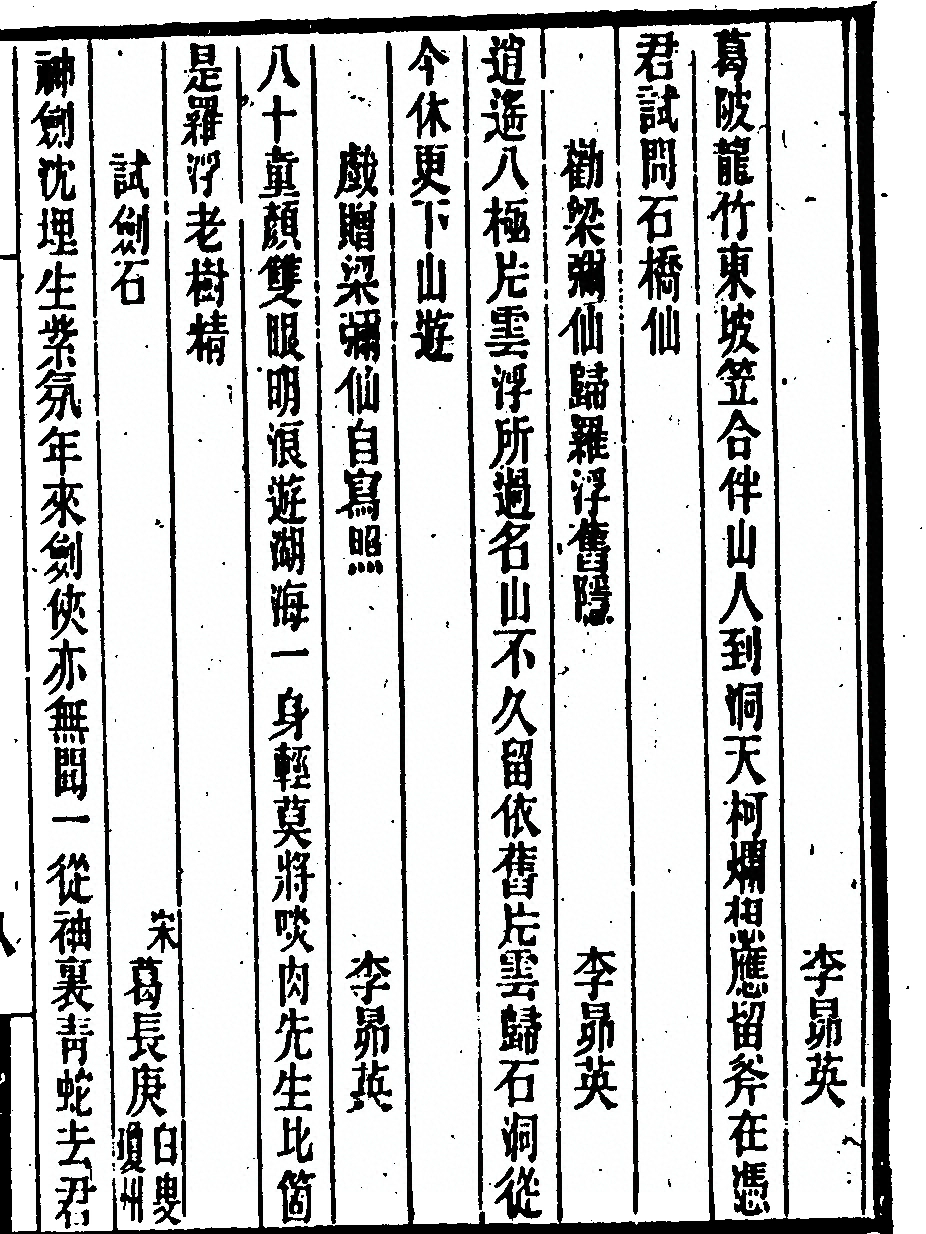 李昴英
葛陂龍竹東坡笠合伴山人到洞天柯爛想應留斧在憑
君試問石橋仙
勸梁彌仙歸羅浮舊隱 李昴英
逍遙八極片雲浮所過名山不久留依舊片雲歸石洞從
今休更下山遊
戲贈梁彌仙自寫照 李昴英
八十童顏雙眼明浪遊湖海一身輕莫將啖肉先生比箇
是羅浮老樹精
試劍石 宋葛長庚白叟瓊州
神劍沈埋生紫氛年來劍俠亦無聞一從袖裏靑蛇去君